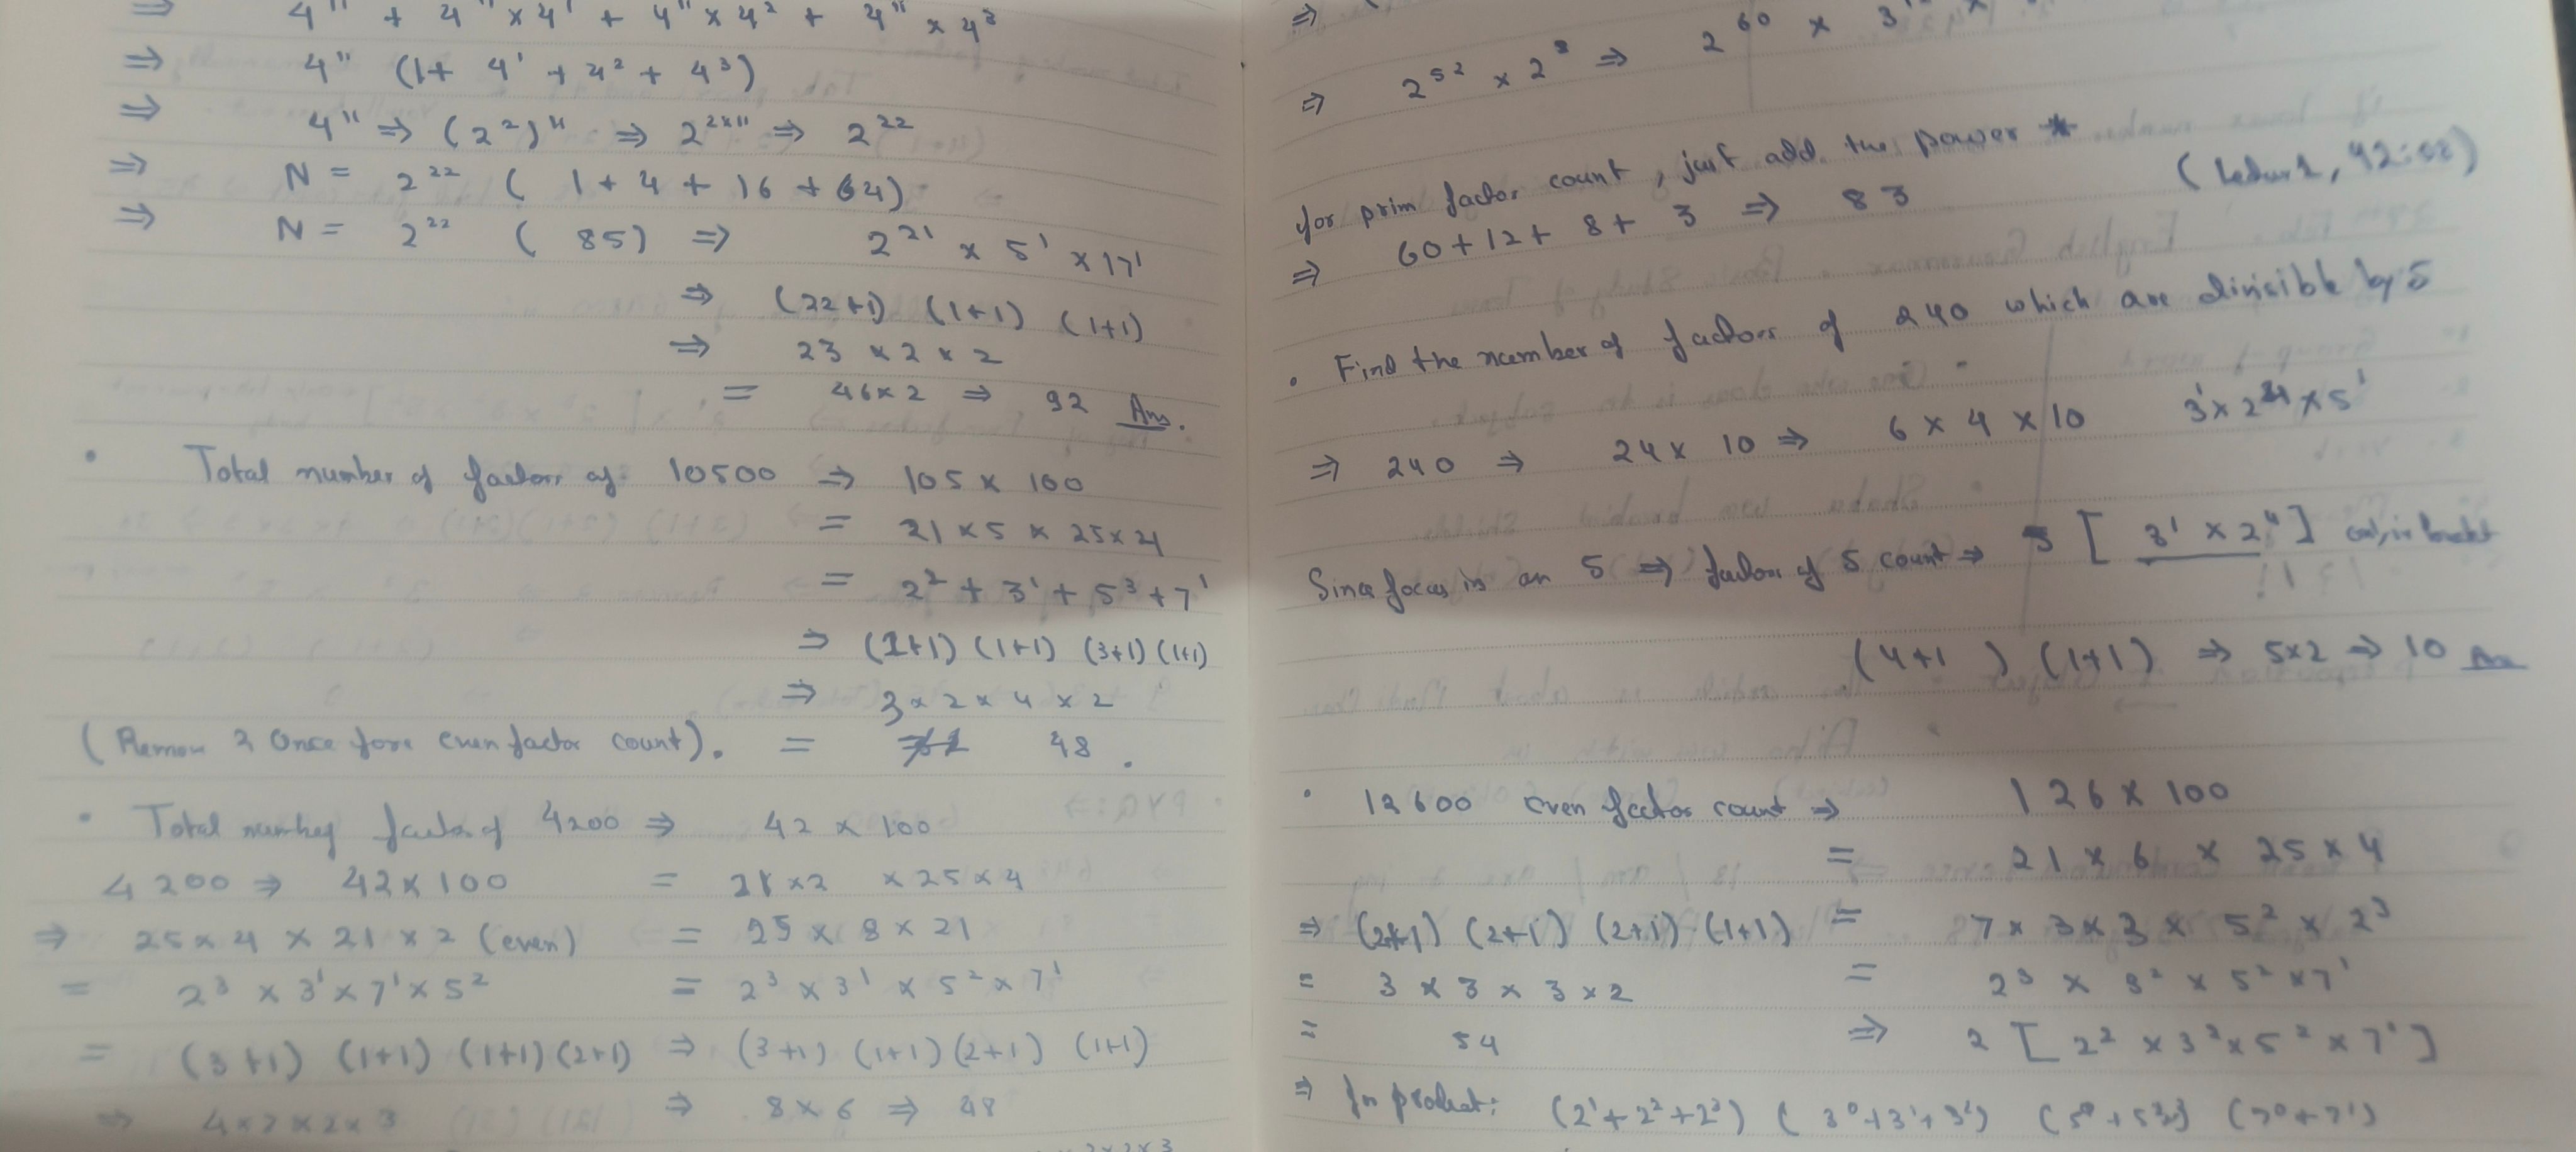 ⇒ 4¹¹ + 4¹¹ × 4¹ + 4¹¹ × 4² + 4¹¹ × 4³
⇒ 4¹¹ (1 + 4¹ + 4² + 4³)
⇒ 4¹¹ ⇒ (2²)¹¹ ⇒ 2²ˣ¹¹ ⇒ 2²²
⇒ N = 2²² ( 1 + 4 + 16 + 64)
⇒ N = 2²² ( 85) ⇒ 2²¹ × 5¹ × 17¹
⇒ (22+1) (1+1) (1+1)
⇒ 23 × 2 × 2
= 46×2 ⇒ 92 Ans.
• Total number of factors of 10500 ⇒ 105 × 100
= 21 × 5 × 25 × 4
= 2² + 3¹ + 5³ + 7¹
⇒ (2+1) (1+1) (3+1) (1+1)
⇒ 3 × 2 × 4 × 2
(Remove 2 Once for even factor count). = 48.
• Total number factors of 4200 ⇒ 42 × 100
4200 ⇒ 42×100 = 21 ×2 × 25 × 4
⇒ 25 × 4 × 21 × 2 (even) = 25 × 8 × 21
= 2³ × 3¹ × 7¹ × 5² = 2³ × 3¹ × 5² × 7¹
= (3+1) (1+1) (1+1) (2+1) ⇒ (3+1) (1+1) (2+1) (1+1)
⇒ 4×2×2×3 ⇒ 8 × 6 ⇒ 48
⇒
⇒ 2⁵² × 2⁸ ⇒ 2⁶⁰ × 3
for prim factor count, just add the power *
⇒ 60 + 12 + 8 + 3 ⇒ 83 (Lecture 2,
• Find the number of factors of 240 which are divisible by 5
⇒ 240 ⇒ 24 × 10 ⇒ 6 × 4 × 10 3¹ × 2⁴ × 5¹
Since focus is on 5 ⇒ factor of 5 count ⇒ 5 [ 3¹ × 2⁴ ]
(4+1) (1+1) ⇒ 5×2 ⇒ 10 Ans
• 12600 even factor count ⇒ 126 × 100
= 21 × 6 × 25 × 4
⇒ (2+1) (2+1) (2+1) (1+1) = 7 × 3 × 3 × 5² × 2³
= 3 × 3 × 3 × 2 = 2³ × 3² × 5² × 7¹
= 54 ⇒ 2 [ 2² × 3² × 5² × 7¹ ]
⇒ (2¹ + 2² + 2³) ( 3⁰ + 3¹ + 3²) (7⁰ + 7¹)